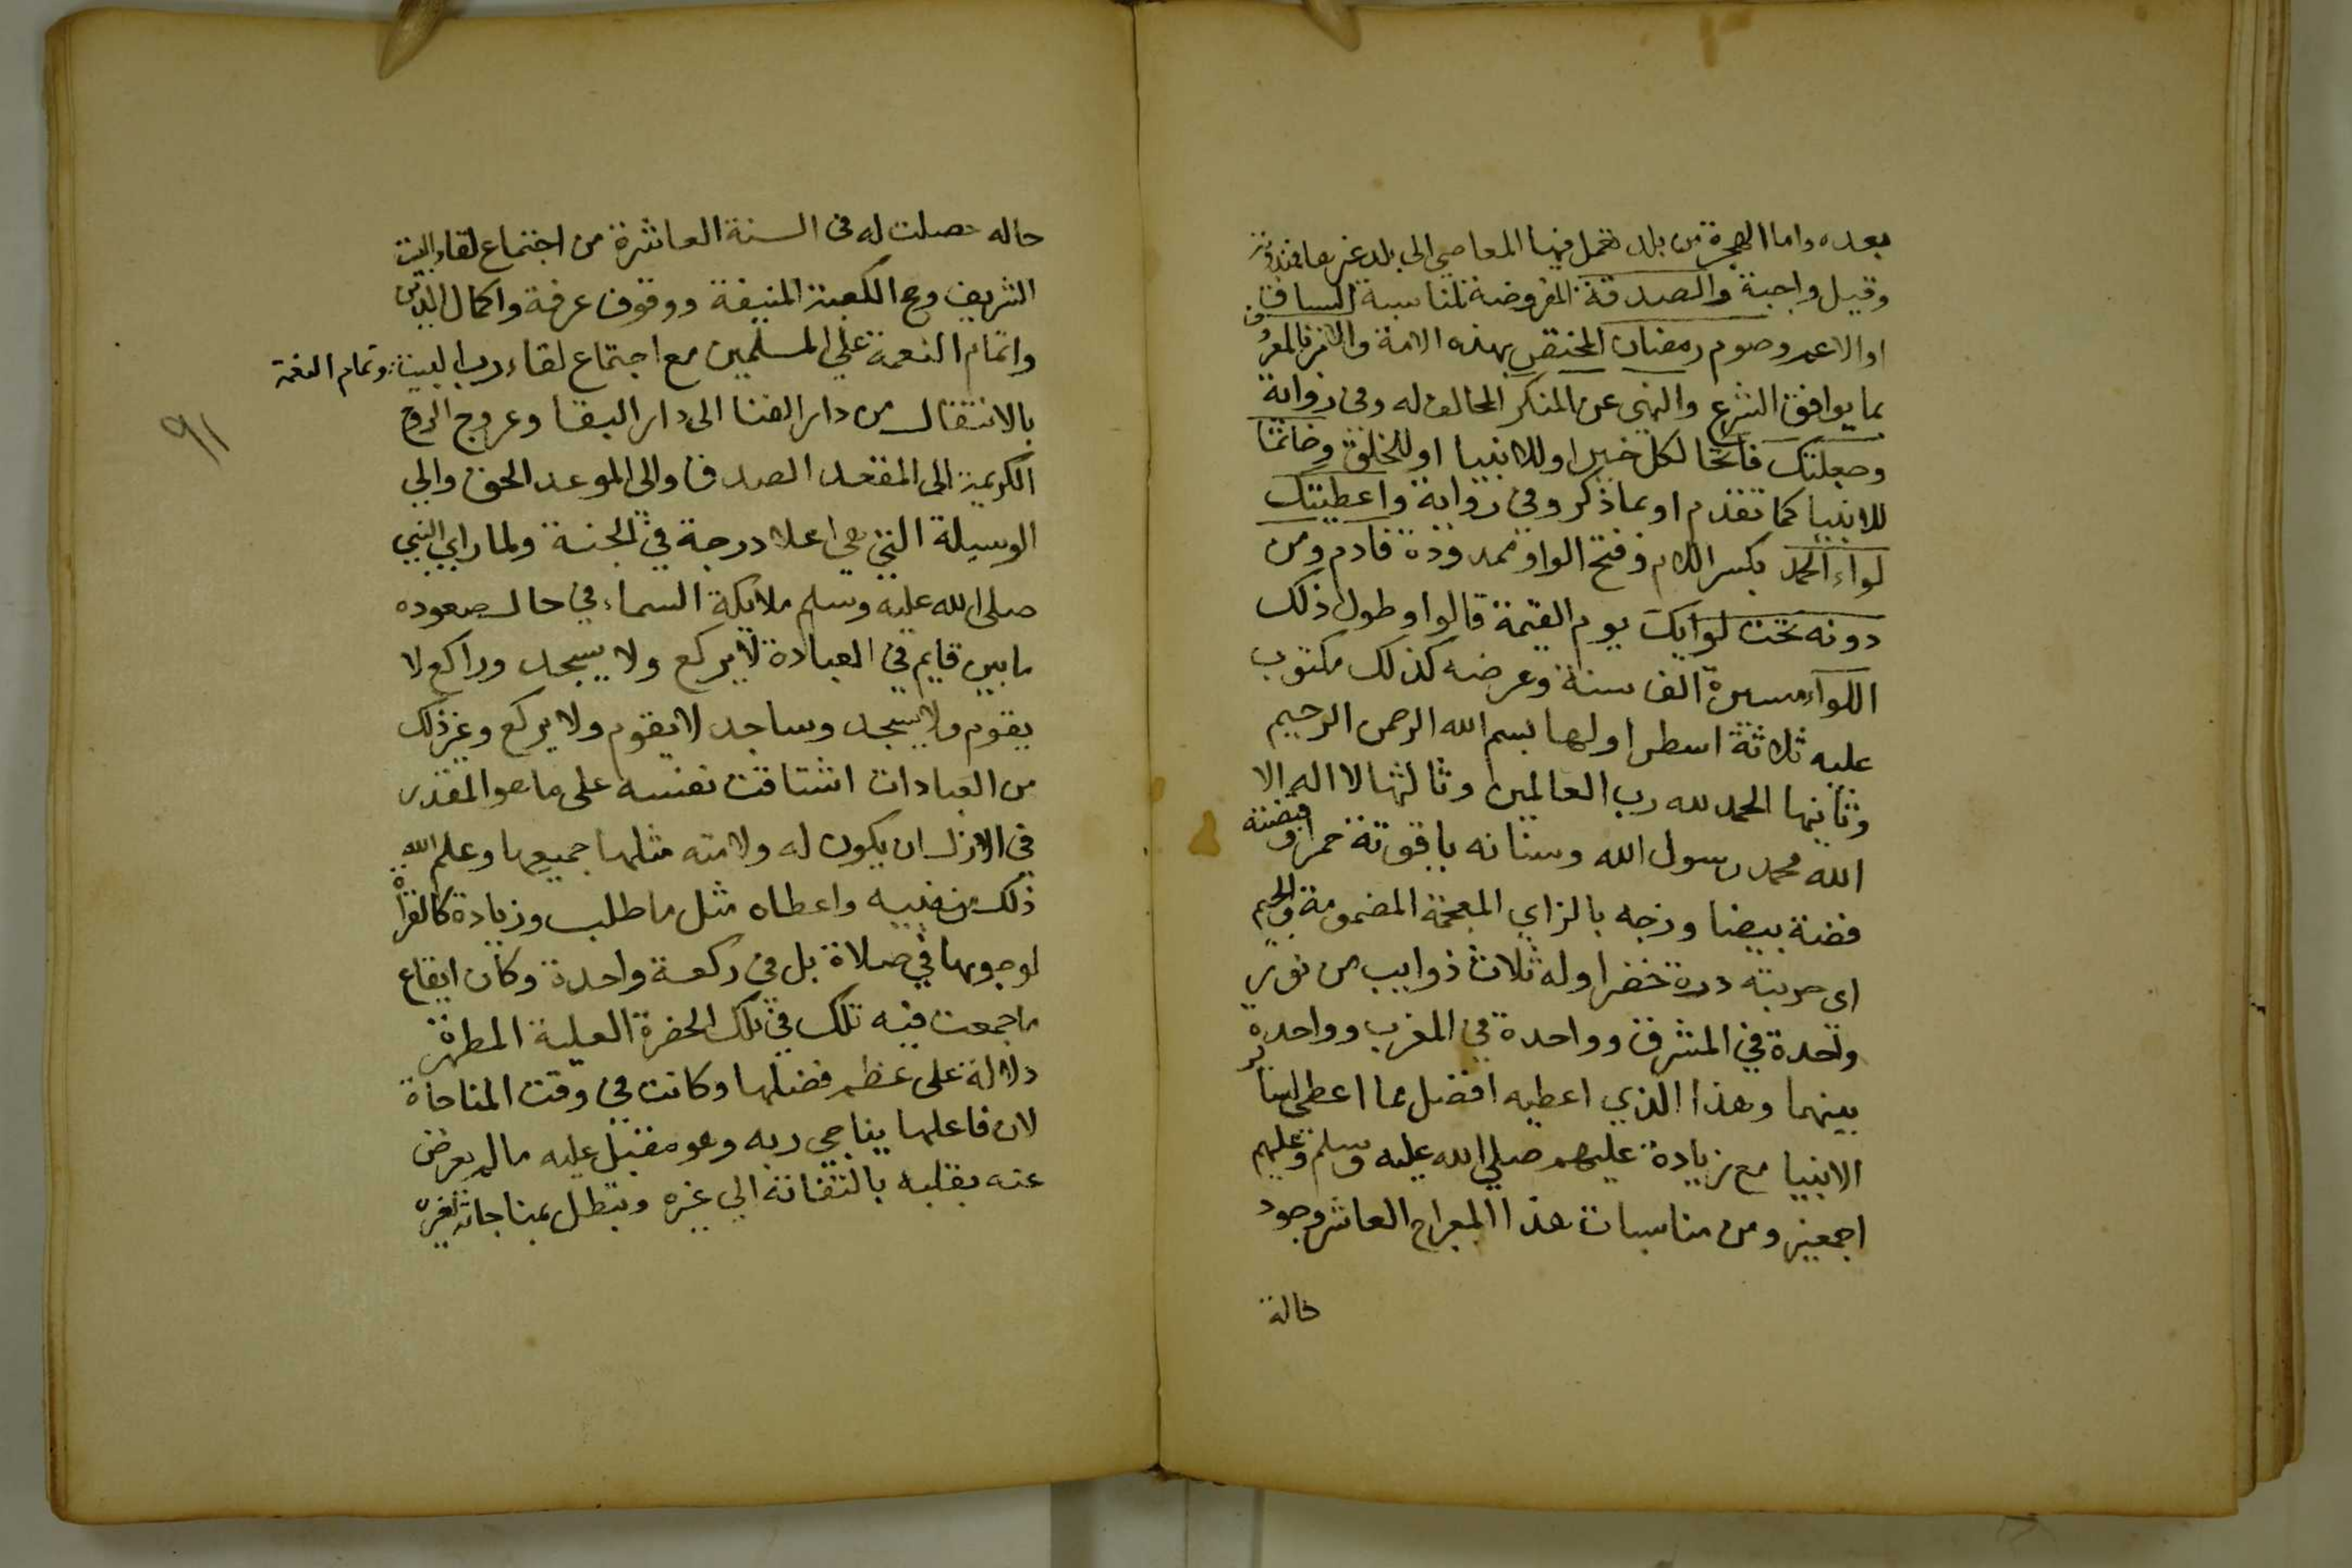 بعده واما الهجرة من بلد تعمل فيها المعاصي الى بلد غيرها فمندوبة
وقيل واجبة والصدقة المفروضة لمناسبة السياق
او الاعم وصوم رمضان المختص بهذه الامة والامر بالمعروف
بما يوافق الشرع والنهي عن المنكر المخالف له وفي رواية
وجعلتك فاتحا لكل خير اوللانبيا اوللخلق وخاتما
للانبيا كما تقدم او بما ذكر وفي رواية واعطيتك
لواء الحمد بكسر اللام وفتح الواو ممدودة فادم ومن
دونه تحت لوايك يوم القيمة قالوا وطول ذلك
اللوآء مسيرة الف سنة وعرضه كذلك مكتوب
عليه ثلاثة اسطر اولها بسم الله الرحمن الرحيم
وثانيها الحمد لله رب العالمين وثالثها لا اله الا
الله محمد رسول الله وسنانه ياقوتة حمرا وقبضته
فضة بيضا وزجه بالزاي المعجمة المضمومة والجيم
اى حربته درة خضرا وله ثلاث ذوايب من نور
واحدة في المشرق وواحدة في المغرب وواحدة
بينهما وهذا الذي اعطيه افضل مما اعطى ساير
الانبيا مع زيادة عليهم صلي الله عليه وسلم وعليهم
اجمعين ومن مناسبات هذا المعراج العاشر وجود
حالة
حاله حصلت له فى السنة العاشرة من اجتماع لقاء البيت
الشريف وحج الكعبة المنيفة ووقوف عرفة واكمال الدين
واتمام النعمة علي المسلمين مع اجتماع لقاء رب البيت وتمام النعمة
بالانتقال من دار الفنا الى دار البقا وعروج الروح
الكريمة الى المقعد الصدق والى الموعد الحق والي
الوسيلة التي هي اعلا درجة في الجنة ولما راي النبي
صلى الله عليه وسلم ملايكة السماء في حال صعوده
ما بين قايم في العبادة لا يركع ولا يسجد وراكع لا
يقوم ولا يسجد وساجد لا يقوم ولا يركع وغير ذلك
من العبادات اشتاقت نفسه على ما هو المقدر
في الازل ان يكون له ولامته مثلها جميعها وعلم الله
ذلك من نبيه واعطاه مثل ما طلب وزيادة كالقراة
لوجوبها في صلاة بل في ركعة واحدة وكان ايقاع
ما جمعت فيه تلك في تلك الحضرة العلية المطهرة
دلالة على عظم فضلها وكانت في وقت المناجاة
لان فاعلها يناجي ربه وهو مقبل عليه ما لم يعرض
عنه بقلبه بالتفاته الي غيره وتبطل بمناجاته لغيره
٩١